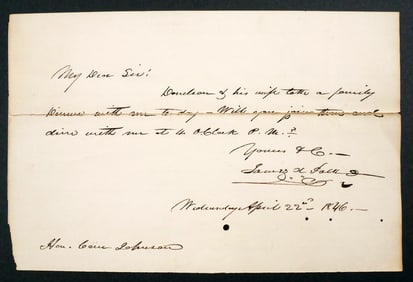 My Dear Sir!
Donelson & his wife take a family
Dinner with me to day – Will you join them and
dine with me at 4 O'Clock P. M.?
Yours &C. –
James K Polk
Wednesday April 22nd – 1846 –
Hon. Cave Johnson